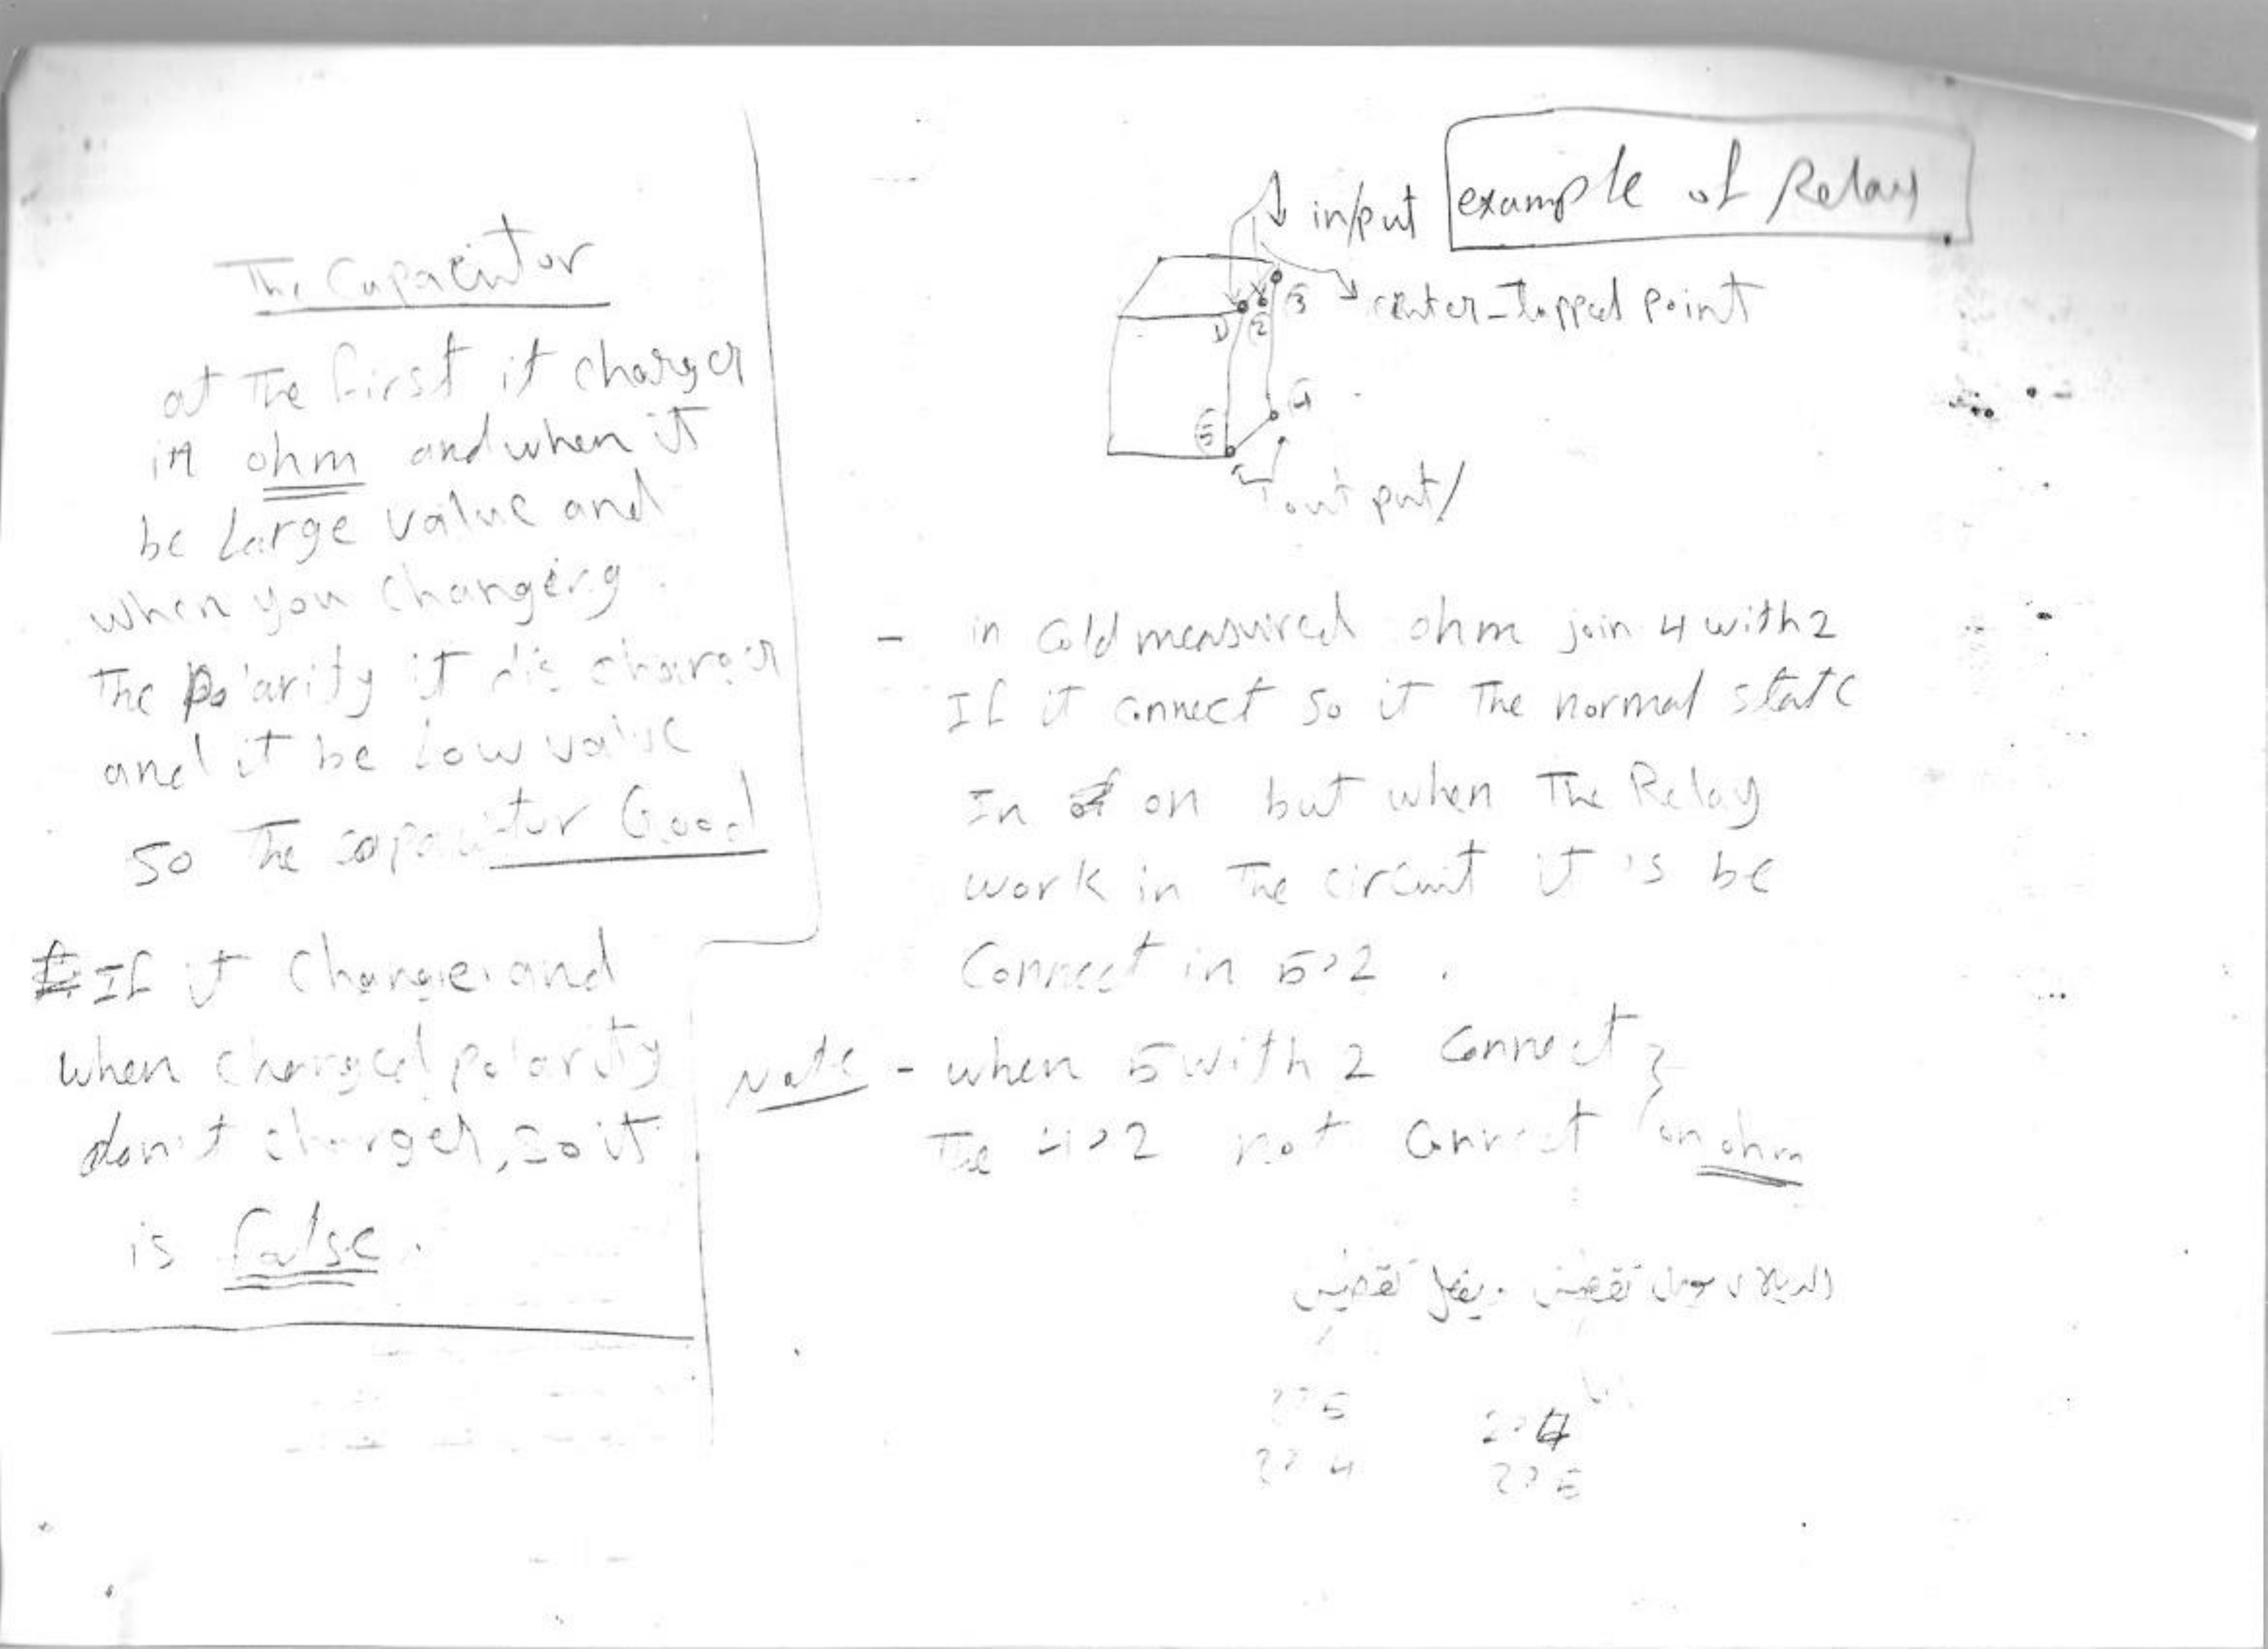 The Capacitor
at the first it charger
in ohm and when it
be large value and
when you changerg
the polarity it discharger
and it be low value
so the capacitor Good
If it change and
when changed polarity
don't charged, so it
is false.
example of Relay
in/put
center-tapped point
1 2 3
4
5
out put/
- in cold measured ohm join 4 with 2
If it connect so it the normal state
In on but when The Relay
work in The circuit it is be
Connect in 5,2.
Note - when 5 with 2 connect
The 4,2 not connect on ohm
2,5
2,4
2,4
2,5